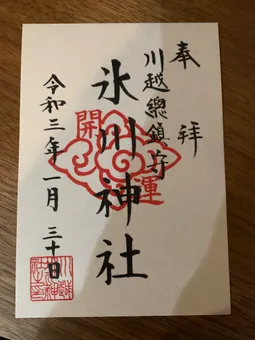 奉拝
川越總鎮守
氷川神社
開運
令和三年一月三十日